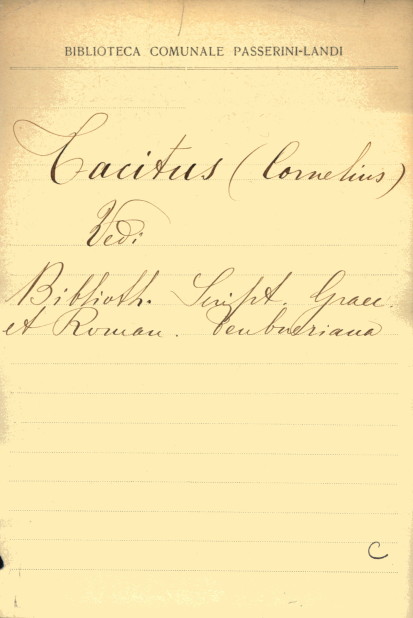 BIBLIOTECA COMUNALE PASSERINI-LANDI
Tacitus (Cornelius)
Vedi
Biblioth. Script. Graec.
et Roman. Teubneriana
C